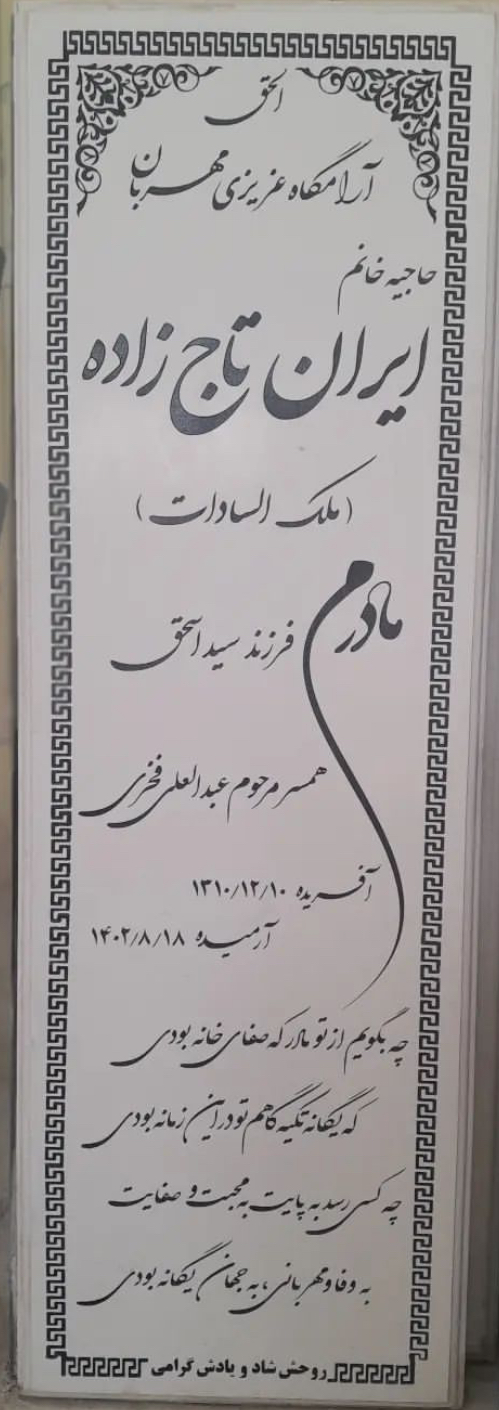 الحق
آرامگاه عزیزی مهربان
حاجیه خانم
ایران تاج زاده
(ملک السادات)
مادرم
فرزند سید اسحق
همسر مرحوم عبدالعلی فخری
آفریده ۱۳۱۰/۱۲/۱۰
آرمیده ۱۴۰۲/۸/۱۸
چه بگویم از تو مادر که صفای خانه بودی
که یگانه تکیه گاهم تو در این زمانه بودی
چه کسی رسد به پایت به محبت و صفایت
به وفا و مهربانی، به جهان یگانه بودی
روحش شاد و یادش گرامی